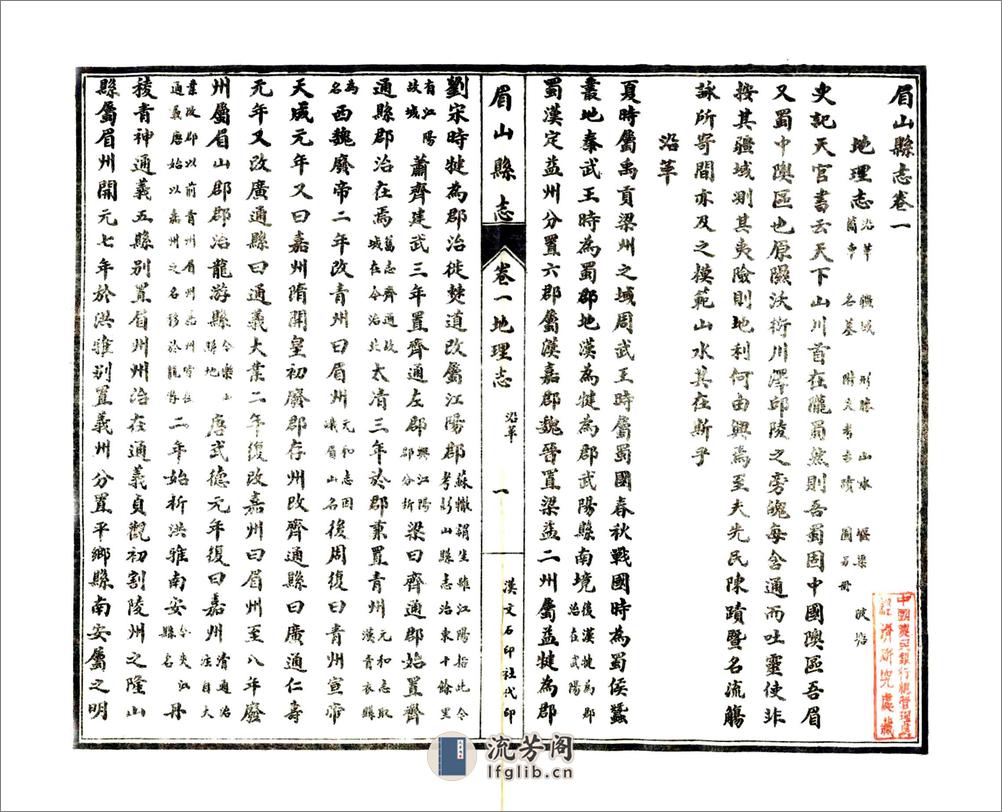 眉山縣志卷一
地理志 沿革 疆域 形勝 山水 堰渠 陂塘
關市 名墓 附文考古蹟 圖另冊
史記天官書云天下山川首在隴蜀然則吾蜀固中國隩區吾眉
又蜀中隩區也原隰沃衍川澤邱陵之旁魄每含通而吐靈使非
按其疆域測其夷險則地利何由興焉至夫先民陳蹟暨名流觴
詠所寄間亦及之模範山水其在斯乎
沿革
夏時屬禹貢梁州之域周武王時屬蜀國春秋戰國時為蜀侯蠶
叢地秦武王時為蜀郡地漢為犍為郡武陽縣南境後漢犍為郡治在武陽
蜀漢定益州分置六郡屬漢嘉郡魏晉置梁益二州屬益犍為郡
眉山縣志 卷一地理志 沿革 一 漢文石印社代印
劉宋時犍為郡治徙僰道改屬江陽郡蘇轍謂生雖江陽指此今考彭山縣志治東十餘里
有江陽故城蕭齊建武三年置齊通左郡與江陽郡分析梁曰齊通郡始置齊
通縣郡治在焉舊志齊通故城在今治北太清三年於郡兼置青州元和志取漢青衣縣
為名西魏廢帝二年改青州曰眉州元和志因峨眉山名後周復曰青州宣帝
天成元年又曰嘉州隋開皇初廢郡存州改齊通縣曰廣通仁壽
元年又改廣通縣曰通義大業二年復改嘉州曰眉州至八年廢
州屬眉山郡郡治龍游縣今樂山縣地唐武德元年復曰嘉州
二年始析洪雅南安丹
稜青神通義五縣別置眉州州治在通義貞觀初割陵州之隆山
縣屬眉州開元七年於洪雅別置義州分置平鄉縣南安屬之明
中國農民銀行
經濟研究處藏
流芳阁
lfglib.cn